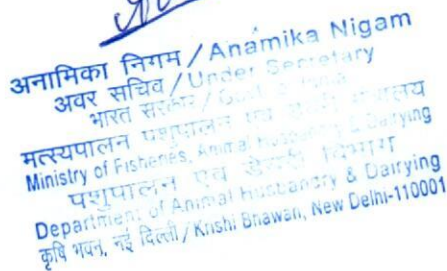 अनामिका निगम / Anamika Nigam
अवर सचिव / Under Secretary
भारत सरकार / Govt. of India
मत्स्यपालन पशुपालन एवं डेयरी मंत्रालय
Ministry of Fisheries, Animal Husbandry & Dairying
पशुपालन एवं डेयरी विभाग
Department of Animal Husbandry & Dairying
कृषि भवन, नई दिल्ली / Krishi Bhawan, New Delhi-110001